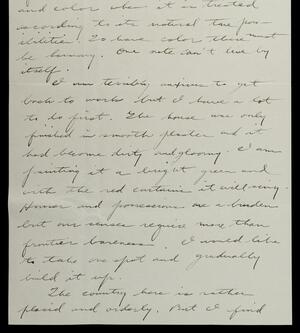 and color when it is treated
according to its natural tone pos-
sibilities. To have color there must
be harmony. One note can't live by
itself.
I am terribly anxious to get
back to work but I have a lot
to do first. The house was only
finished in smooth plaster and it
had become dirty and gloomy. I am
painting it a bright green and
with the red curtains it will sing.
and possessions are a burden
but our senses require more than
frontier bareness. I would like
to take one spot and gradually
build it up.
The country here is rather
placid and orderly. But I find